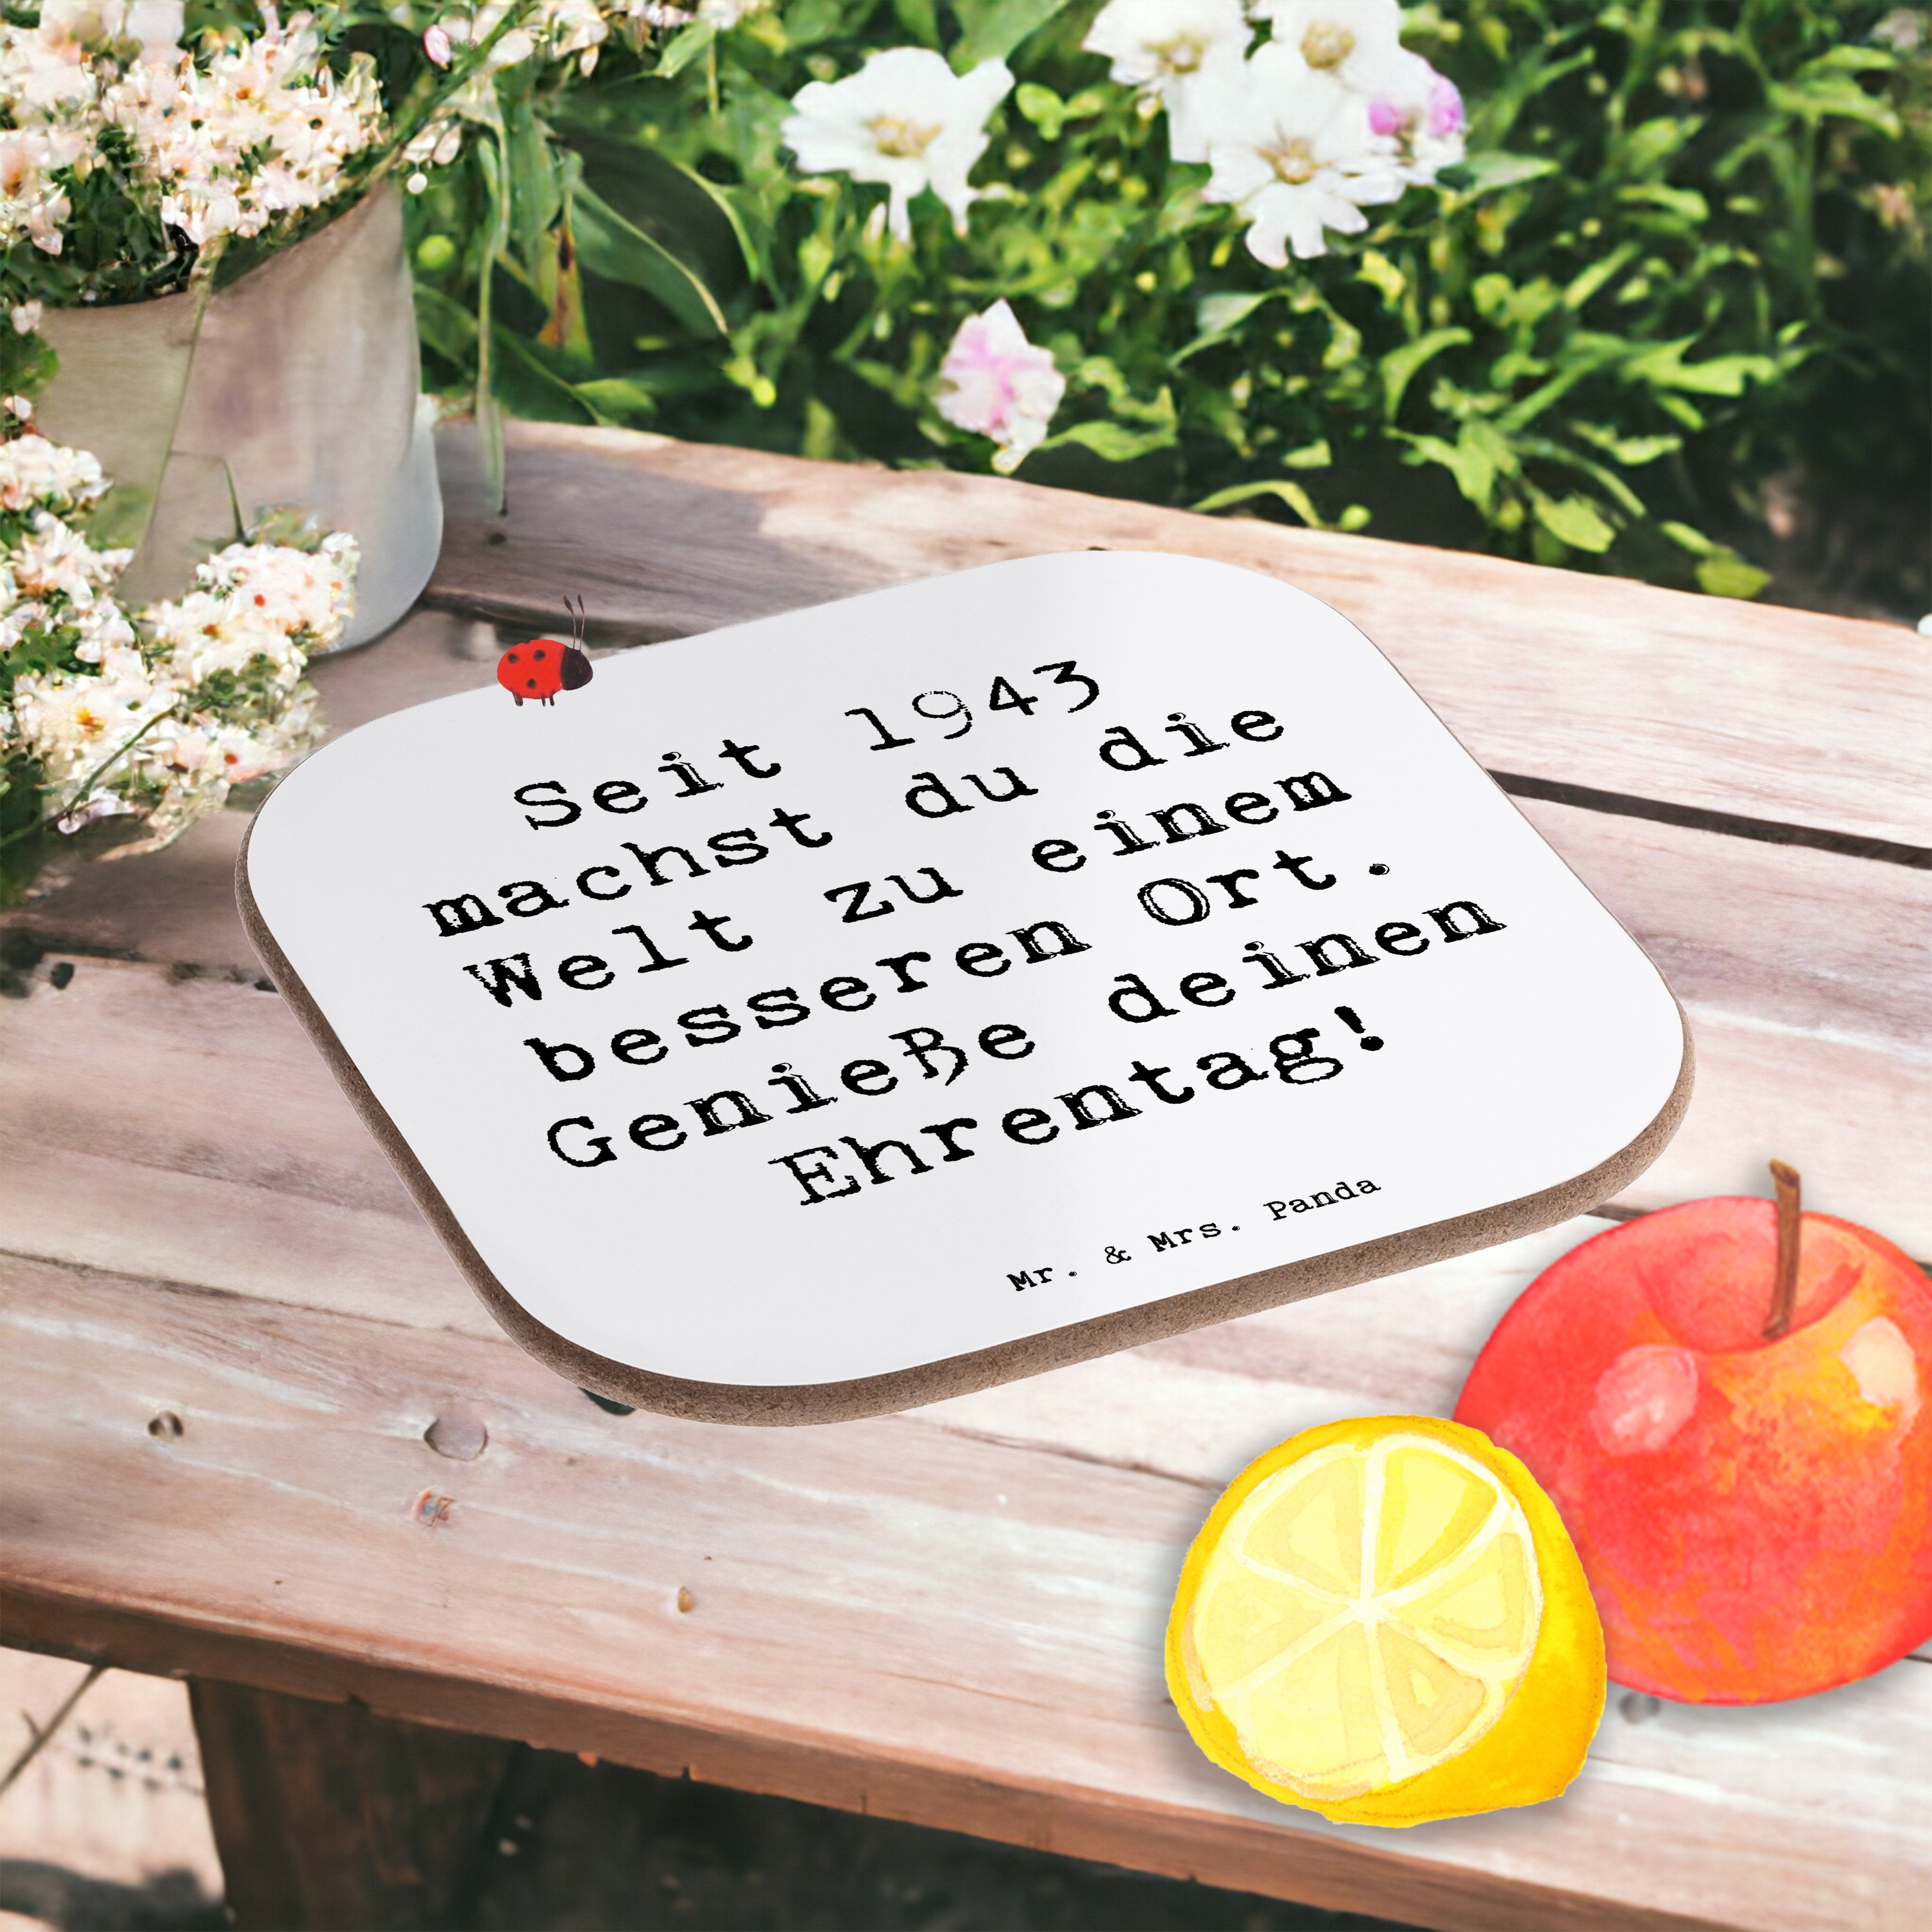 Seit 1943
machst du die
Welt zu einem
besseren Ort.
Genieße deinen
Ehrentag!
Mr. & Mrs. Panda